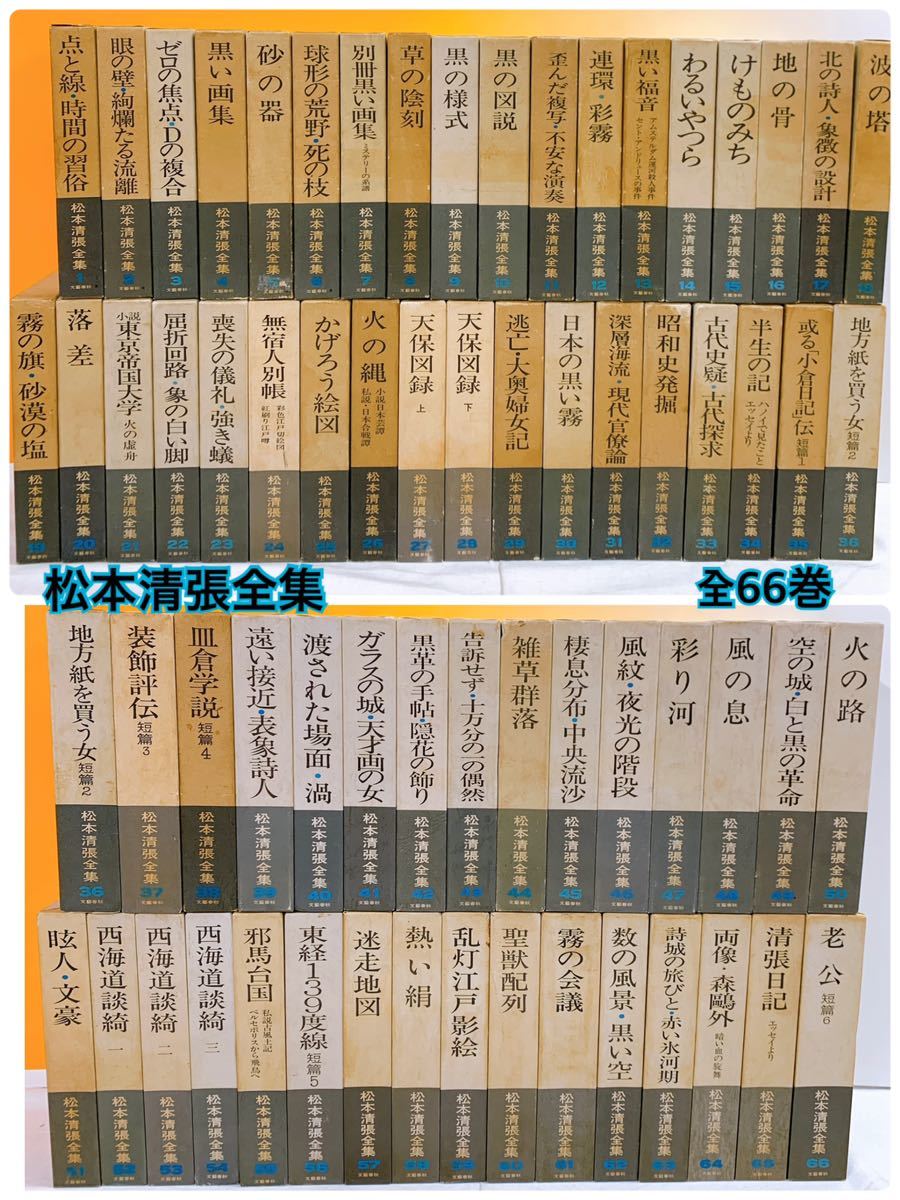 点と線・時間の習俗
松本清張全集
1
文藝春秋
眼の壁・絢爛たる流離
松本清張全集
2
文藝春秋
ゼロの焦点・Dの複合
松本清張全集
3
文藝春秋
黒い画集
松本清張全集
4
文藝春秋
砂の器
松本清張全集
5
球形の荒野・死の枝
松本清張全集
6
文藝春秋
別冊黒い画集
ミステリーの系譜
松本清張全集
7
文藝春秋
草の陰刻
松本清張全集
8
文藝春秋
黒の様式
松本清張全集
9
文藝春秋
黒の図説
松本清張全集
10
文藝春秋
歪んだ複写・不安な演奏
松本清張全集
11
文藝春秋
連環・彩霧
松本清張全集
12
文藝春秋
黒い福音
アムステルダム運河殺人事件
セント・アンドリュースの事件
松本清張全集
13
文藝春秋
わるいやつら
松本清張全集
14
文藝春秋
けものみち
松本清張全集
15
文藝春秋
地の骨
松本清張全集
16
文藝春秋
北の詩人・象徴の設計
松本清張全集
17
文藝春秋
波の塔
松本清張全集
18
文藝春秋
霧の旗・砂漠の塩
松本清張全集
19
文藝春秋
落差
松本清張全集
20
文藝春秋
小説
東京帝国大学
火の虚舟
松本清張全集
21
文藝春秋
屈折回路・象の白い脚
松本清張全集
22
文藝春秋
喪失の儀礼・強き蟻
松本清張全集
23
文藝春秋
無宿人別帳
彩色江戸切絵図
紅刷り江戸噂
松本清張全集
24
文藝春秋
かげろう絵図
松本清張全集
25
文藝春秋
火の縄
小説日本芸譚
私説・日本合戦譚
松本清張全集
26
文藝春秋
天保図録
上
松本清張全集
27
文藝春秋
天保図録
下
松本清張全集
28
文藝春秋
逃亡・大奥婦女記
松本清張全集
29
文藝春秋
日本の黒い霧
松本清張全集
30
文藝春秋
深層海流・現代官僚論
松本清張全集
31
文藝春秋
昭和史発掘
松本清張全集
32
文藝春秋
古代史疑・古代探求
松本清張全集
33
文藝春秋
半生の記
ハノイで見たこと
エッセイより
松本清張全集
34
文藝春秋
或る「小倉日記」伝
短篇1
松本清張全集
35
文藝春秋
地方紙を買う女
短篇2
松本清張全集
36
文藝春秋
松本清張全集
全66巻
地方紙を買う女
短篇2
松本清張全集
36
文藝春秋
装飾評伝
短篇3
松本清張全集
37
文藝春秋
皿倉学説
短篇4
松本清張全集
38
文藝春秋
遠い接近・表象詩人
松本清張全集
39
文藝春秋
渡された場面・渦
松本清張全集
40
文藝春秋
ガラスの城・天才画の女
松本清張全集
41
文藝春秋
黒革の手帖・隠花の飾り
松本清張全集
42
文藝春秋
告訴せず・十万分の一の偶然
松本清張全集
43
文藝春秋
雑草群落
松本清張全集
44
文藝春秋
棲息分布・中央流沙
松本清張全集
45
文藝春秋
風紋・夜光の階段
松本清張全集
46
文藝春秋
彩り河
松本清張全集
47
文藝春秋
風の息
松本清張全集
48
文藝春秋
空の城・白と黒の革命
松本清張全集
49
文藝春秋
火の路
松本清張全集
50
文藝春秋
眩人・文豪
松本清張全集
51
文藝春秋
西海道談綺
一
松本清張全集
52
文藝春秋
西海道談綺
二
松本清張全集
53
文藝春秋
西海道談綺
三
松本清張全集
54
文藝春秋
邪馬台国
私説古風土記
ペルセポリスから飛鳥へ
松本清張全集
55
文藝春秋
東経139度線
短篇5
松本清張全集
56
文藝春秋
迷走地図
松本清張全集
57
文藝春秋
熱い絹
松本清張全集
58
文藝春秋
乱灯江戸影絵
松本清張全集
59
文藝春秋
聖獣配列
松本清張全集
60
文藝春秋
霧の会議
松本清張全集
61
文藝春秋
数の風景・黒い空
松本清張全集
62
文藝春秋
詩城の旅びと・赤い氷河期
松本清張全集
63
文藝春秋
両像・森鷗外
暗い血の旋舞
松本清張全集
64
文藝春秋
清張日記
エッセイより
松本清張全集
65
文藝春秋
老公
短篇6
松本清張全集
66
文藝春秋